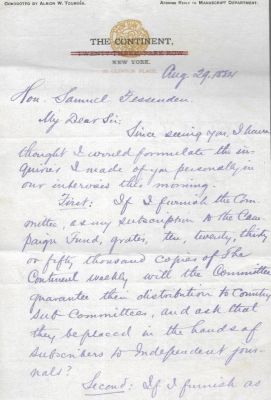 CONDUCTED BY ALBION W. TOURGÉE.
ADDRESS REPLY TO MANUSCRIPT DEPARTMENT.
THE CONTINENT,
NEW YORK.
23 CLINTON PLACE.
Aug. 29, 1884
Hon. Samuel Fessenden.
My Dear Sir:
Since seeing you, I have
thought I would formulate the in-
quiries I made of you personally, in
our interview this morning.
First: If I furnish the Com-
mittee, as my subscription to the Cam-
paign Fund, gratis, ten, twenty, thirty
or fifty thousand copies of The
Continent weekly will the Committee
guarantee their distribution to County
Sub Committees, and ask that
they be placed in the hands of
subscribers to Independent jour-
nals?
Second: If I furnish as